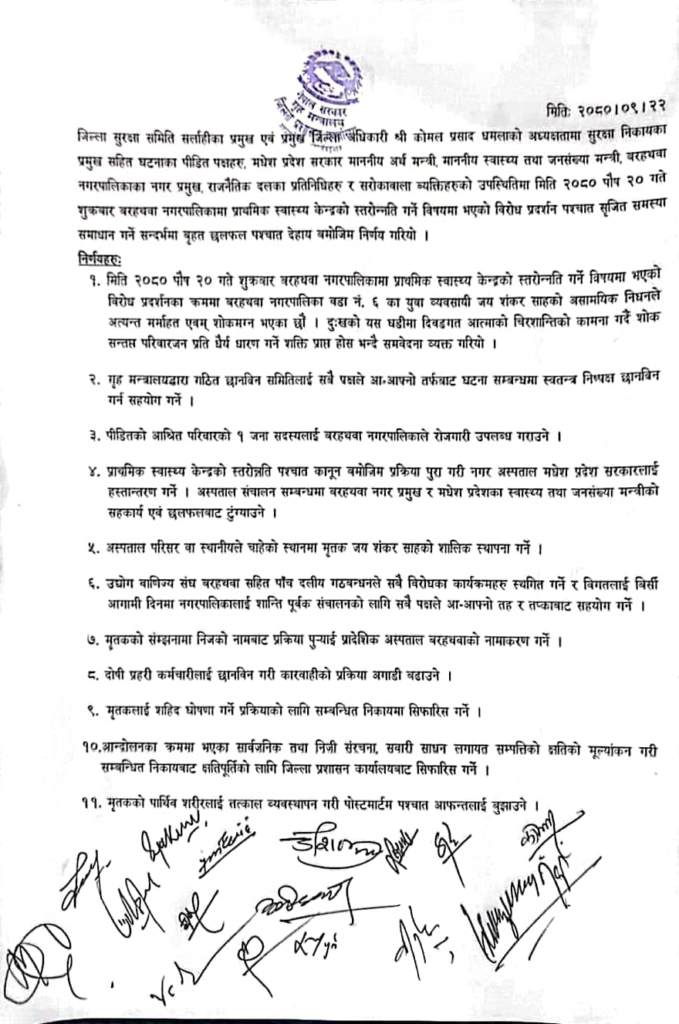 नेपाल सरकार
गृह मन्त्रालय
मितिः २०८०।०९।२२
जिल्ला सुरक्षा समिति सर्लाहीका प्रमुख एवं प्रमुख जिल्ला अधिकारी श्री कोमल प्रसाद धमलाको अध्यक्षतामा सुरक्षा निकायका
प्रमुख सहित घटनाका पीडित पक्षहरु, मधेश प्रदेश सरकार माननीय अर्थ मन्त्री, माननीय स्वास्थ्य तथा जनसंख्या मन्त्री, बरहथवा
नगरपालिकाका नगर प्रमुख, राजनैतिक दलका प्रतिनिधिहरु र सरोकावाला व्यक्तिहरुको उपस्थितिमा मिति २०८० पौष २० गते
शुक्रबार बरहथवा नगरपालिकामा प्राथमिक स्वास्थ्य केन्द्रको स्तरोन्नति गर्ने विषयमा भएको विरोध प्रदर्शन पश्चात सृजित समस्या
समाधान गर्ने सन्दर्भमा बृहत छलफल पश्चात देहाय बमोजिम निर्णय गरियो ।
निर्णयहरुः
१. मिति २०८० पौष २० गते शुक्रबार बरहथवा नगरपालिकामा प्राथमिक स्वास्थ्य केन्द्रको स्तरोन्नति गर्ने विषयमा भएको
विरोध प्रदर्शनका क्रममा बरहथवा नगरपालिका वडा नं. ६ का युवा व्यवसायी जय शंकर साहको असामयिक निधनले
अत्यन्त मर्माहत एवम् शोकमग्न भएका छौ । दुःखको यस घडीमा दिवङ्गत आत्माको चिरशान्तिको कामना गर्दै शोक
सन्तप्त परिवारजन प्रति धैर्य धारण गर्ने शक्ति प्राप्त होस भन्दै समवेदना व्यक्त गरियो ।
२. गृह मन्त्रालयद्वारा गठित छानबिन समितिलाई सबै पक्षले आ-आफ्नो तर्फबाट घटना सम्बन्धमा स्वतन्त्र निष्पक्ष छानबिन
गर्न सहयोग गर्ने ।
३. पीडितको आश्रित परिवारको १ जना सदस्यलाई बरहथवा नगरपालिकाले रोजगारी उपलब्ध गराउने ।
४. प्राथमिक स्वास्थ्य केन्द्रको स्तरोन्नति पश्चात कानून बमोजिम प्रक्रिया पुरा गरी नगर अस्पताल मधेश प्रदेश सरकारलाई
हस्तान्तरण गर्ने । अस्पताल संचालन सम्बन्धमा बरहथवा नगर प्रमुख र मधेश प्रदेशका स्वास्थ्य तथा जनसंख्या मन्त्रीको
सहकार्य एवं छलफलबाट टुंग्याउने ।
५. अस्पताल परिसर वा स्थानीयले चाहेको स्थानमा मृतक जय शंकर साहको शालिक स्थापना गर्ने ।
६. उद्योग वाणिज्य संघ बरहथवा सहित पाँच दलीय गठबन्धनले सबै विरोधका कार्यक्रमहरु स्थगित गर्ने र विगतलाई बिर्सी
आगामी दिनमा नगरपालिकालाई शान्ति पूर्वक संचालनको लागि सबै पक्षले आ-आफ्नो तह र तप्काबाट सहयोग गर्ने ।
७. मृतकको संम्झनामा निजको नामबाट प्रक्रिया पुऱ्याई प्रादेशिक अस्पताल बरहथवाको नामाकरण गर्ने ।
८. दोषी प्रहरी कर्मचारीलाई छानबिन गरी कारवाहीको प्रक्रिया अगाडी बढाउने ।
९. मृतकलाई शहिद घोषणा गर्ने प्रक्रियाको लागि सम्बन्धित निकायमा सिफारिस गर्ने ।
१०.आन्दोलनका क्रममा भएका सार्वजनिक तथा निजी संरचना, सवारी साधन लगायत सम्पत्तिको क्षतिको मूल्यांकन गरी
सम्बन्धित निकायबाट क्षतिपूर्तिको लागि जिल्ला प्रशासन कार्यालयबाट सिफारिस गर्ने ।
११. मृतकको पार्थिव शरीरलाई तत्काल व्यवस्थापन गरी पोस्टमार्टम पश्चात आफन्तलाई बुझाउने ।